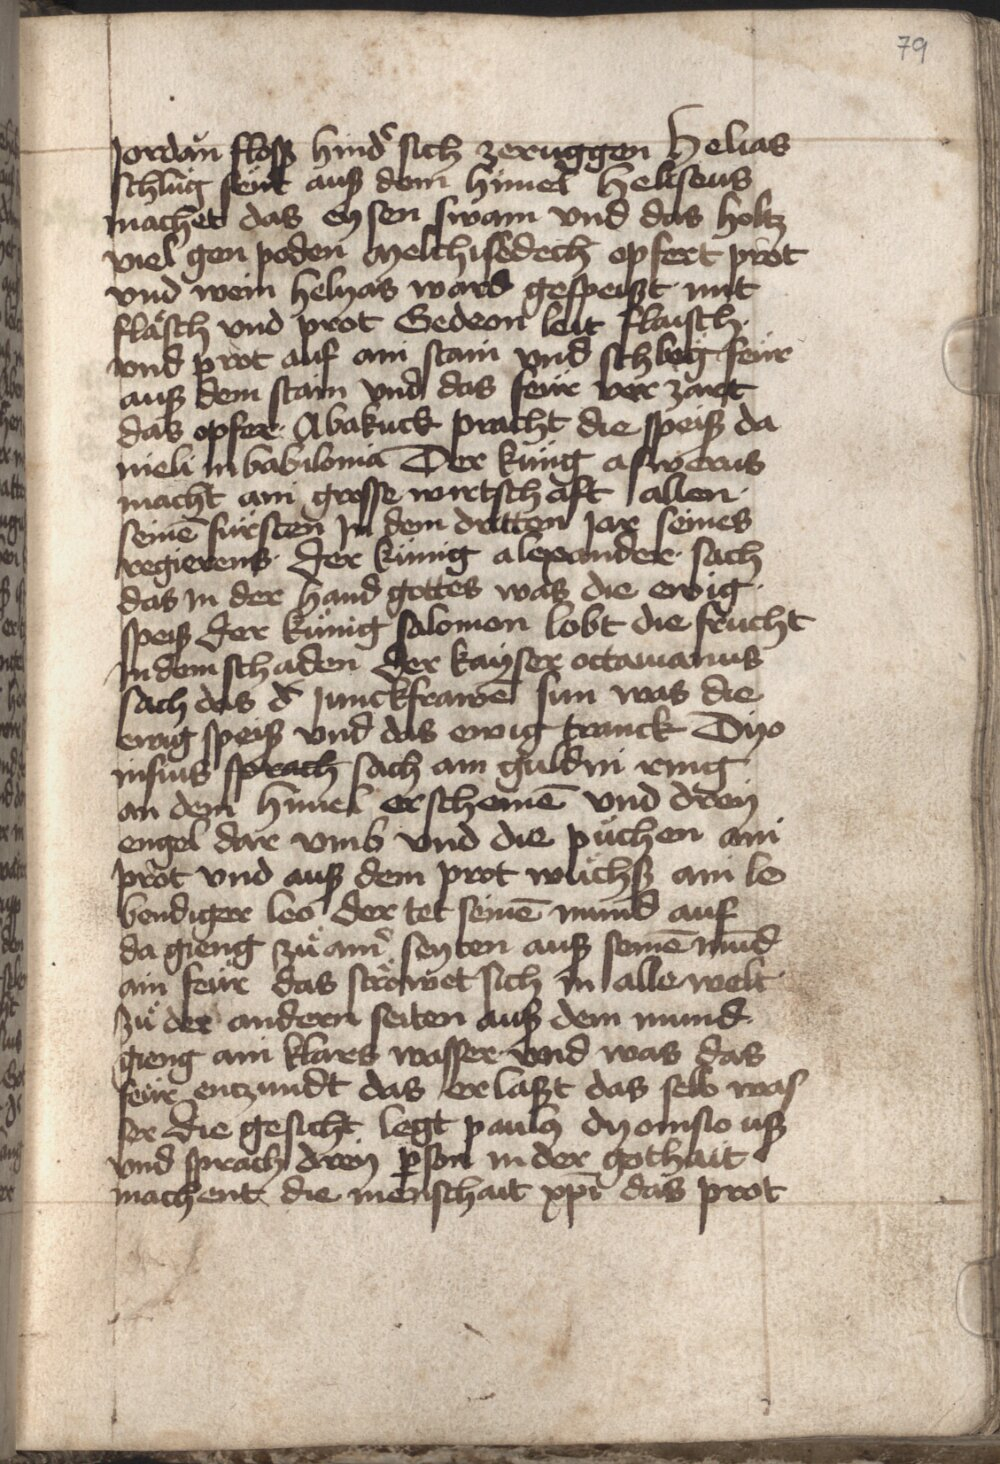 79
Jordan flosß hindˢ sich zeruggen Helias
schlug feur auß dem himel Heliseus
machet das eysen swam vnd das holtz
viel gen poden Melchisedech opfert prot
vnd wein helyas ward gespeißt mit
fläsch vnd prot Gedeon leit flaisch
vnd prot auf ain stain vnd schlůg feür
auß dem stain vnd das feür ver zart
das opfer Abakuck pracht die speiß da
nieli in babilonia Der küng aswerus
macht ain grosse wirtschaft allen
seinē fürsten Jn dem dritten Jar seines
regierens Der künig alexander sach
das in der hand gottes was die ewig
speiß Der künig salomon lobt die frucht
in dem schaden Der kayser octauianus
sach das dˢ junckfrawē sun was die
ewig speiß vnd das ewig tranck Dyo
nisius sprach sach ain guldin ring
an dem himel erscheinē vnd drey
engel dar vmb vnd die půchen ain
prot vnd auß dem prot wůchß ain le
bendiger leo der tet seinē mund auf
da gieng zů ainˢ seyten auß seinē mūd
ain feür das ströwet sich in alle welt
zů der andern seiten auß dem mund
gieng ain klars wasser vnd was das
feür entzundt das erlaßt das selb was
ser Die gesicht legt paulus dyonisio uß
vnd sprach drey pson in der gothait
machent die menschait xpi das prot